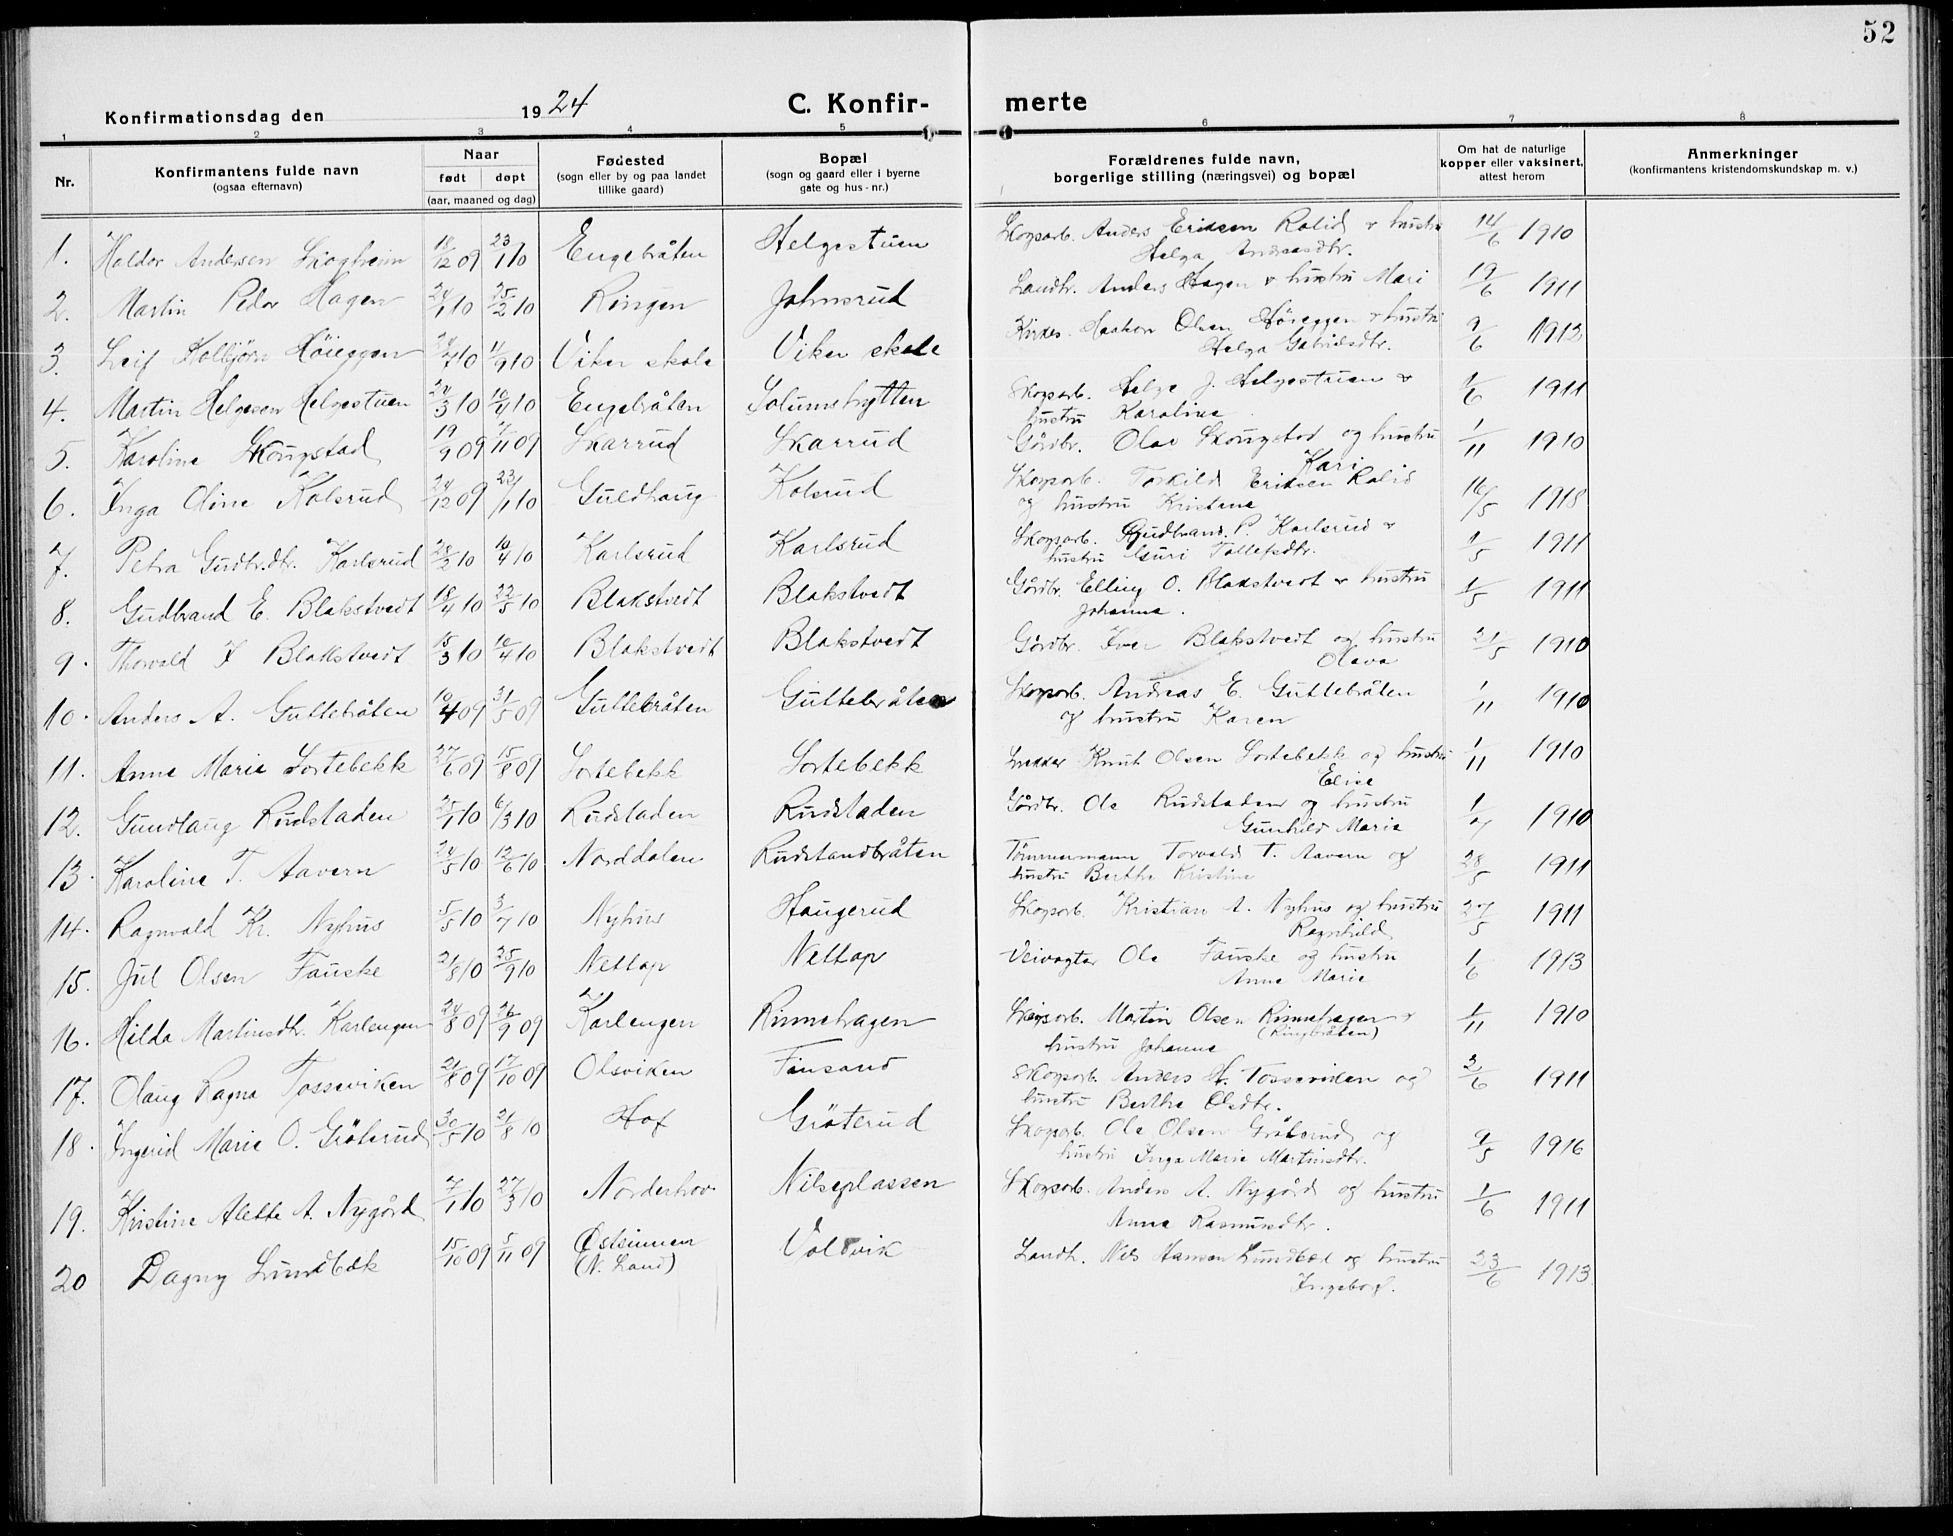 52
Konfirmationsdag den 1924 C. Konfir- merte
1 2 3 4 5 6 7 8
Nr. Konfirmantens fulde navn (ogsaa efternavn) Naar født døpt (aar, maaned og dag) Fødested (sogn eller by og paa landet tillike gaard) Bopæl (sogn og gaard eller i byerne gate og hus-nr.) Forældrenes fulde navn, borgerlige stilling (næringsvei) og bopæl Om hat de naturlige kopper eller vaksinert, attest herom Anmerkninger (konfirmantens kristendomskundskap m. v.)
1. Haldor Andersen Skogheim 18/12 09 23/1 10 Engebråten Helgestuen Skogsarb. Anders Eriksen Rolid & hustru 14/6 1910
Helga Andreasdtr.
2. Martin Peder Hagen 24/1 10 25/2 10 Ringen Johnsrud Landh. Anders Hagen & hustru Mari 19/6 1911
3. Leif Kolbjørn Höieggen 7 10 11/9 10 Viker skole Viker skole Kirkes. Haakon Olsen Höieggen & hustru 9/6 1913
Helga Gabrielsdtr.
4. Martin Helgesen Helgestuen 24/3 10 10/4 10 Engebråten Solumshytten Skogsarb. Helge J. Helgestuen & 1/6 1911
hustru Karoline
5. Karoline Skougstad 19/9 09 7/11 09 Skarrud Skarrud Gårdbr. Olav Skougstad og hustru 1/11 1910
Kari
6. Inga Oline Kolsrud 24/12 09 23/1 10 Guldhaug Kolsrud Skogsarb. Torkild Eriksen Rolid 16/5 1918
og hustru Kristiane
7. Petra Gudbr.dtr. Karlsrud 28/2 10 10/4 10 Karlsrud Karlsrud Skogsarb. Gudbrand P. Karlsrud & 1/5 1911
hustru Guri Tollefsdtr.
8. Gudbrand E. Blakstvedt 18/4 10 22/5 10 Blakstvedt Blakstvedt Gårdbr. Elling O. Blakstvedt & hustru 1/5 1911
Johanna.
9. Thorvald I Blakstvedt 15/3 10 10/4 10 Blakstvedt Blakstvedt Gårdbr. Iver Blakstvedt og hustru 21/5 1910
Olava
10. Anders A. Guttebråten 10/4 09 31/5 09 Guttebråten Guttebråten Skogsarb. Andreas E. Guttebråten 1/11 1910
og hustru Karen
11. Anne Marie Sortebekk 27/6 09 15/8 09 Sortebekk Sortebekk Snekker Knut Olsen Sortebekk og hustru 1/11 1910
Elise
12. Gundlaug Rudstaden 25/1 10 6/3 10 Rudstaden Rudstaden Gårdbr. Ole Rudstaden og hustru 1/7 1910
Gunhild Marie
13. Karoline T. Aavern 24/5 10 12/6 10 Norddalen Rudstandbråten Tömmermann Torvald T. Aavern og 28/5 1911
hustru Berthe Kristine
14. Ragnvald Kr. Nyhus 5/5 10 3/7 10 Nyhus Haugerud Skogsarb. Kristian A. Nyhus og hustru 27/5 1911
Ragnhild
15. Jul Olsen Fauske 21/8 10 25/9 10 Nettap Nettap Veivogter Ole Fauske og hustru 1/6 1913
Anne Marie
16. Hilda Martinsdtr. Karlengen 24/8 09 26/9 09 Karlengen Rinnehagen Skogsarb. Martin Olsen Rinnehagen & 1/11 1910
(Ringbråten)
hustru Johanne
17. Olaug Ragna Tosseviken 21/8 09 17/10 09 Olsviken Finsand Skogsarb. Anders H. Tosseviken og 3/6 1911
hustru Berthe Olsdtr.
18. Ingerid Marie O. Gröterud 30/5 10 21/8 10 Hof Gröterud Skogsarb. Ole Olsen Gröterud og 9/5 1916
hustru Inga Marie Martinsdtr.
19. Kristine Alette A. Nygård 7/1 10 27/3 10 Norderhov Nilseplassen Skogsarb. Anders A. Nygård og hustru 1/6 1911
Anne Rasmusdtr.
20 Dagny Lundbæk 15/10 09 5/11 09 Østsinnen (N. Land) Voldvik Landh. Nils Hansen Lundbæk og hustru 23/6 1913
Ingeborg.